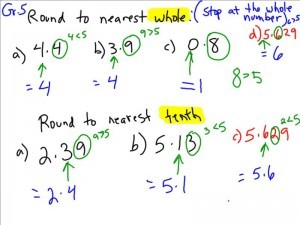 Gr.5 Round to nearest whole: (stop at the whole number)
a) 4.4 4<5 b) 3.9 9>5 c) 0.8 d) 5.629 6>5
= 4 = 4 = 1 8>5 = 6
Round to nearest tenth
a) 2.39 9>5 b) 5.13 3<5 c) 5.629 2<5
= 2.4 = 5.1 = 5.6